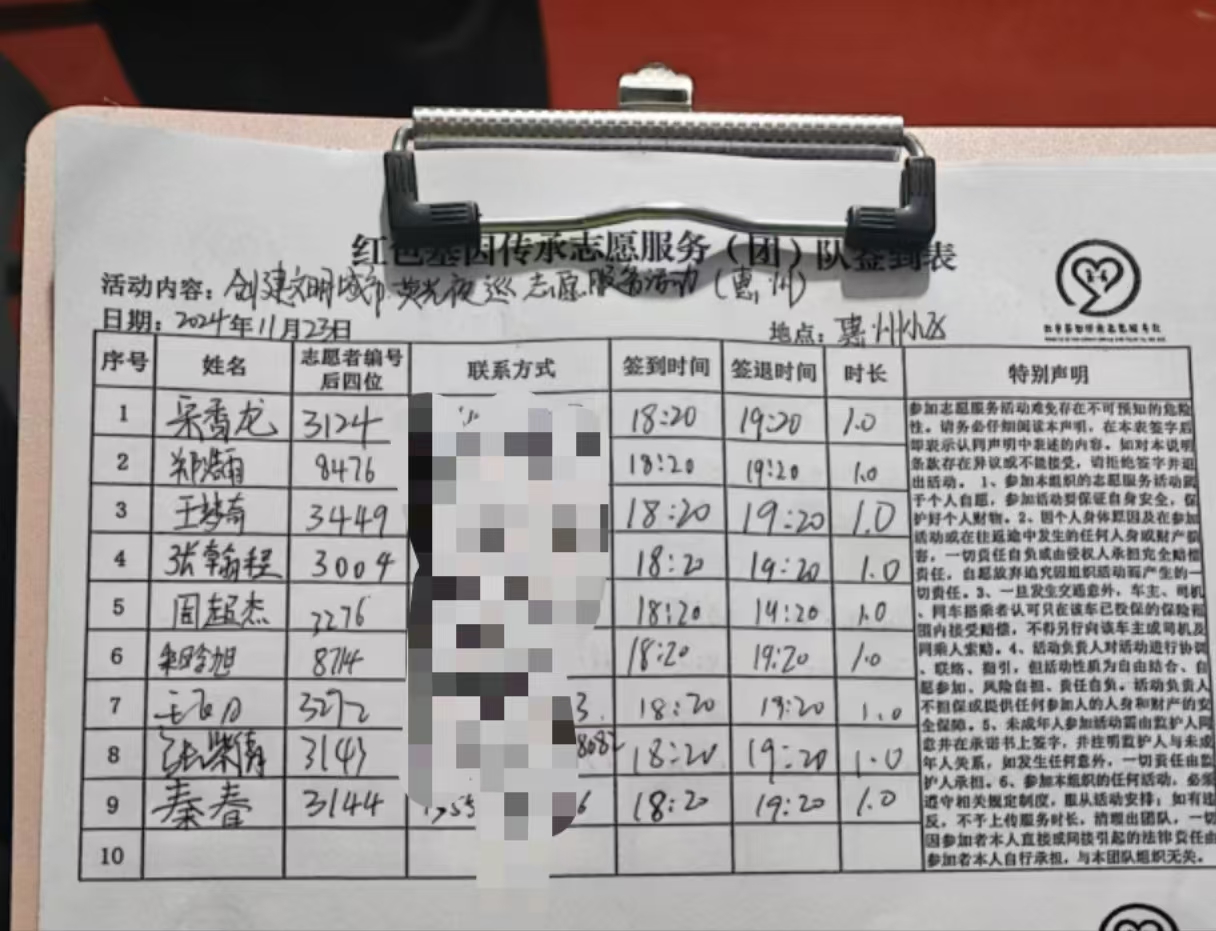 红色基因传承志愿服务（团）队签到表
活动内容：创建文明城市荧光夜巡志愿服务活动（惠州）
日期：2024年11月23日
地点：惠州小区
序号 姓名 志愿者编号后四位 联系方式 签到时间 签退时间 时长 特别声明
1 宋香龙 3124 18:20 19:20 1.0
2 8476 18:20 19:20 1.0
3 王梦奇 3449 18:20 19:20 1.0
4 张翰程 3004 18:20 19:20 1.0
5 周超杰 3276 18:20 19:20 1.0
6 8714 18:20 19:20 1.0
7 3272 3. 18:20 19:20 1.0
8 3143 8082 18:20 19:20 1.0
9 秦春 3144 1355 6 18:20 19:20 1.0
10
参加志愿服务活动难免存在不可预知的危险
性。请务必仔细阅读本声明。在本表签字后
即表示认同声明中表述的内容。如对本说明
条款存在异议或不能接受，请拒绝签字并退
出活动。1、参加本组织的志愿服务活动属
于个人自愿，参加活动要保证自身安全，保
护好个人财物。2、因个人身体原因及在参加
活动或在往返途中发生的任何人身或财产损
害，一切责任自负或由侵权人承担完全赔偿
责任，自愿放弃追究因组织活动而产生的一
切责任。3、一旦发生交通意外，车主、司机
、同车搭乘者认可只在该车已投保的保险范
围内接受赔偿，不得另行向该车主或司机及
同乘人索赔。4、活动负责人对活动进行协调
、联络、指引，但活动性质为自由结合、自
愿参加、风险自担、责任自负。活动负责人
不担保或提供任何参加人的人身和财产的安
全保障。5、未成年人参加活动需由监护人同
意并在承诺书上签字，并注明监护人与未成
年人关系，如发生任何意外，一切责任由监
护人承担。6、参加本组织的任何活动，必须
遵守相关规定制度，服从活动安排；如有违
反，不予上传服务时长，清理出团队，一切
因参加者本人直接或间接引起的法律责任由
参加者本人自行承担，与本团队组织无关。